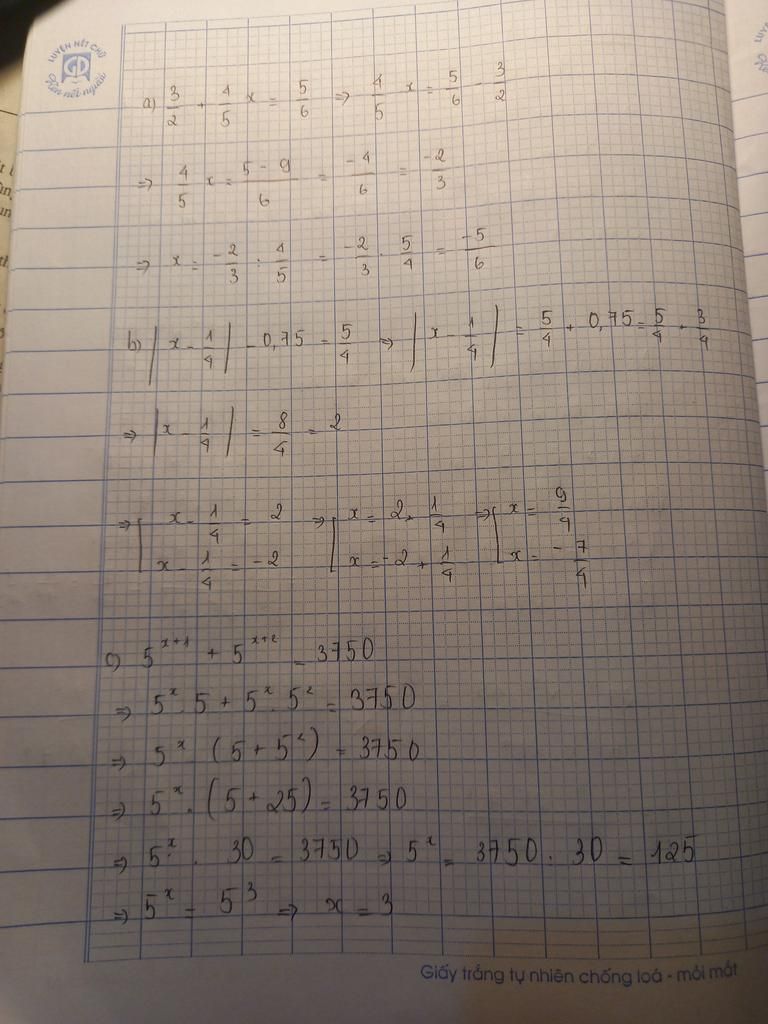 LUYỆN NÉT CHỮ
GD
Rèn nết người
a) 3/2 + 4/5 x = 5/6 => 4/5 x = 5/6 - 3/2
=> 4/5 x = (5 - 9)/6 = -4/6 = -2/3
=> x = -2/3 : 4/5 = -2/3 . 5/4 = -5/6
b) |x - 1/4| - 0,75 = 5/4 => |x - 1/4| = 5/4 + 0,75 = 5/4 + 3/4
=> |x - 1/4| = 8/4 = 2
=> [ x - 1/4 = 2 => [ x = 2 + 1/4 => [ x = 9/4
x - 1/4 = -2 x = -2 + 1/4 x = -7/4
c) 5^{x+1} + 5^{x+2} = 3750
=> 5^x . 5 + 5^x . 5^2 = 3750
=> 5^x (5 + 5^2) = 3750
=> 5^x . (5 + 25) = 3750
=> 5^x . 30 = 3750 => 5^x = 3750 : 30 = 125
=> 5^x = 5^3 => x = 3
Giấy trắng tự nhiên chống loá - mỏi mắt